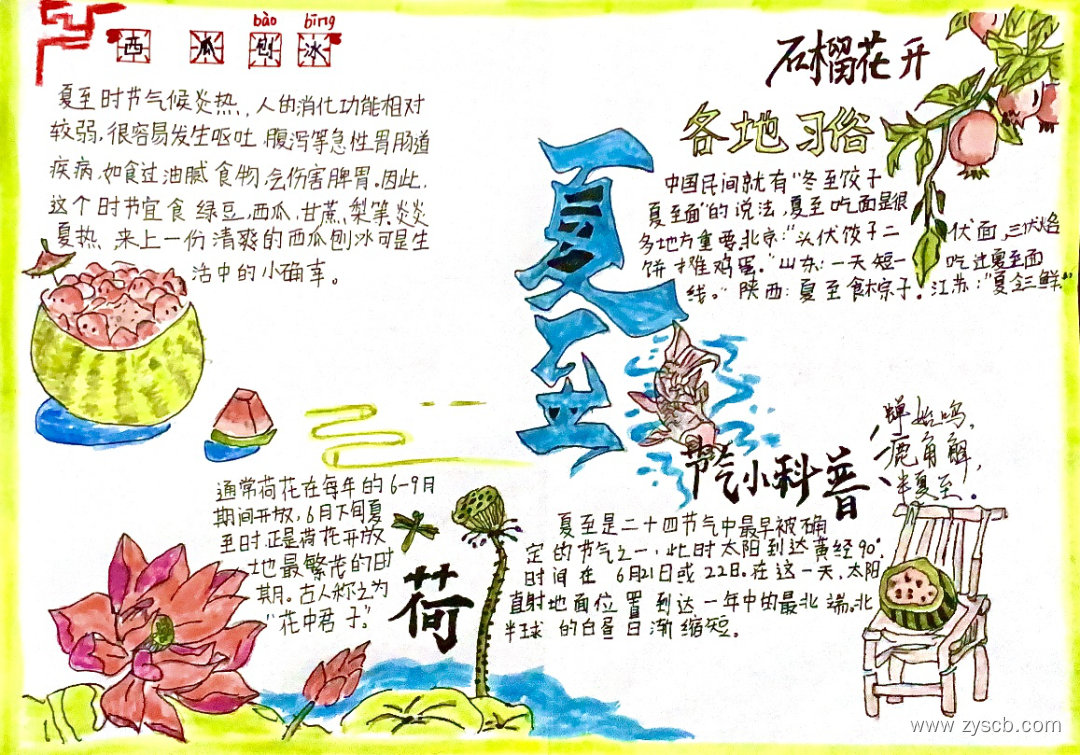 bào bīng
西瓜刨冰
夏至时节气候炎热,人的消化功能相对
较弱,很容易发生呕吐、腹泻等急性胃肠道
疾病,如食过油腻食物,会伤害脾胃.因此,
这个时节宜食绿豆,西瓜,甘蔗,梨等,炎炎
夏热、来上一份清爽的西瓜刨冰可是生
活中的小确幸。
石榴花开
各地习俗
中国民间就有“冬至饺子
夏至面”的说法,夏至吃面是很
多地方重要,北京:“头伏饺子二伏面,三伏烙
饼摊鸡蛋。”山东:一天短一吃过夏至面
线。”陕西:夏至食粽子.江苏:“夏至三鲜”
夏至
蝉始鸣,
鹿角解,
半夏至.
节气小科普
夏至是二十四节气中最早被确
定的节气之一,此时太阳到达黄经90°.
时间在6月21日或22日.在这一天,太阳
直射地面位置到达一年中的最北端.北
半球的白昼日渐缩短。
通常荷花在每年的6-9月
期间开放,6月下旬夏
至时正是荷花开放
地最繁茂的时
期.古人称之为
“花中君子”
荷
www.zyscb.com